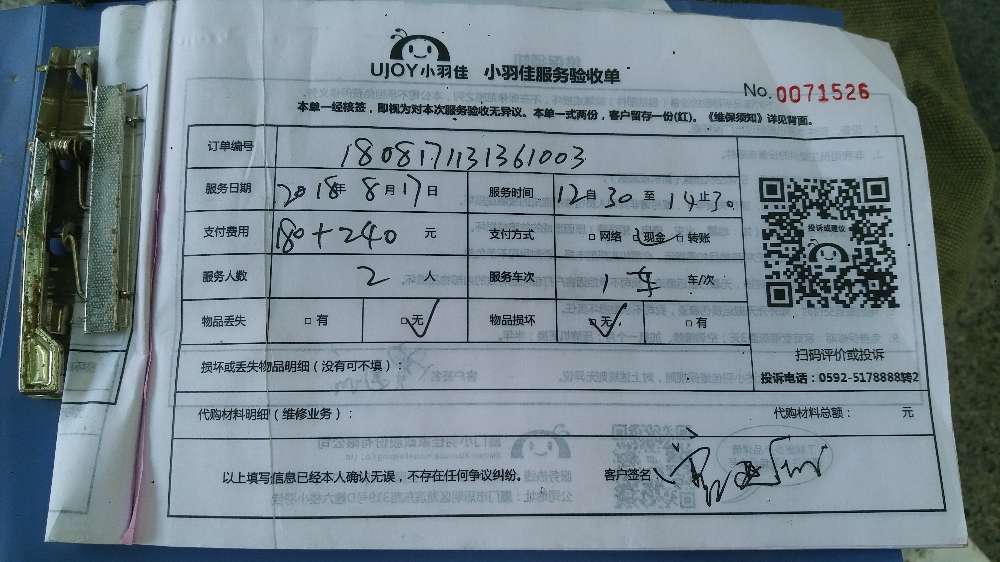 UJOY小羽佳 小羽佳服务验收单
No.0071526
本单一经核签，即视为对本次服务验收无异议。本单一式两份，客户留存一份(红)。《维保须知》详见背面。
订单编号 1808171131361003
服务日期 2018年 8月17日 服务时间 12自30至14止30
支付费用 180+240 元 支付方式 □网络 ☑现金 □转账
服务人数 2 人 服务车次 1车 车/次
物品丢失 □有 ☑无 物品损坏 ☑无 □有
投诉或建议
扫码评价或投诉
投诉电话：0592-5178888转2
损坏或丢失物品明细（没有可不填）：
代购材料明细（维修业务）： 代购材料总额： 元
以上填写信息已经本人确认无误，不存在任何争议纠纷。 客户签名：